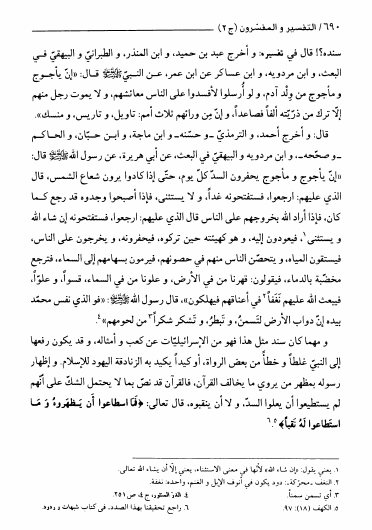 ٦٩٠ / التفسير و المفسّرون (ج ٢)
سنده؟! قال في تفسيره: و أخرج عبد بن حميد، و ابن المنذر، و الطبرانيّ و البيهقيّ في
البعث، و ابن مردويه، و ابن عساكر عن ابن عمر، عن النبيّ ﷺ قال: «إنّ يأجوج
و مأجوج من وِلْد آدم، و لو أُرسلوا لأفسدوا على الناس معائشهم، و لا يموت رجل منهم
إلّا ترك من ذرّيّته ألفاً فصاعداً، و إنّ من ورائهم ثلاث أمم: تاويل، و تاريس، و منسك».
قال: و أخرج أحمد، و الترمذيّ ـ و حسّنه ـ و ابن ماجة، و ابن حبّان، و الحاكم
ـ و صحّحه ـ، و ابن مردويه و البيهقي في البعث، عن أبي هريرة، عن رسول الله ﷺ قال:
«إنّ يأجوج و مأجوج يحفرون السدّ كلّ يوم، حتّى إذا كادوا يرون شعاع الشمس، قال
الذي عليهم: ارجعوا، فستفتحونه غداً، و لا يستثني، فإذا أصبحوا وجدوه قد رجع كما
كان، فإذا أراد الله بخروجهم على الناس قال الذي عليهم: ارجعوا، فستفتحونه إن شاء الله
و يستثني١، فيعودون إليه، و هو كهيئته حين تركوه، فيحفرونه، و يخرجون على الناس،
فيستقون المياه، و يتحصّن الناس منهم في حصونهم، فيرمون بسهامهم إلى السماء، فترجع
مخضّبة بالدماء، فيقولون: قهرنا من في الأرض، و علونا من في السماء، قسواً، و علوّاً،
فيبعث الله عليهم نَغَفاً٢ في أعناقهم فيهلكون»، قال رسول الله ﷺ: «فو الذي نفس محمّد
بيده إنّ دوابّ الأرض لتسمنُ، و تبطَرُ، و تَشكر شكراً٣ من لحومهم»٤.
و مهما كان سند مثل هذا فهو من الإسرائيليّات عن كعب و أمثاله، و قد يكون رفعها
إلى النبيّ غلطاً و خطأً من بعض الرواة، أو كيداً يكيد به الزنادقة اليهود للإسلام. و إظهار
رسوله بمظهر من يروي ما يخالف القرآن، فالقرآن قد نصّ بما لا يحتمل الشكّ على أنّهم
لم يستطيعوا أن يعلوا السدّ، و لا أن ينقبوه، قال تعالى: ﴿فَمَا اسطاعوا أَن يَظهَروهُ وَ مَا
استَطاعوا لَهُ نَقباً﴾٥ .٦
١. يعني يقول: «إن شاء الله» لأنّها في معنى الاستثناء، يعني إلّا أن يشاء الله تعالى.
٢. النغف ـ محرّكة ـ: دود يكون في أنوف الإبل و الغنم، واحده: نغفة.
٣. أي تسمن سمناً.
٤. الدرّ المنثور، ج ٤، ص ٢٥١.
٥. الكهف (١٨): ٩٧.
٦. راجع تحقيقنا بهذا الصدد، في كتاب شبهات و ردود.